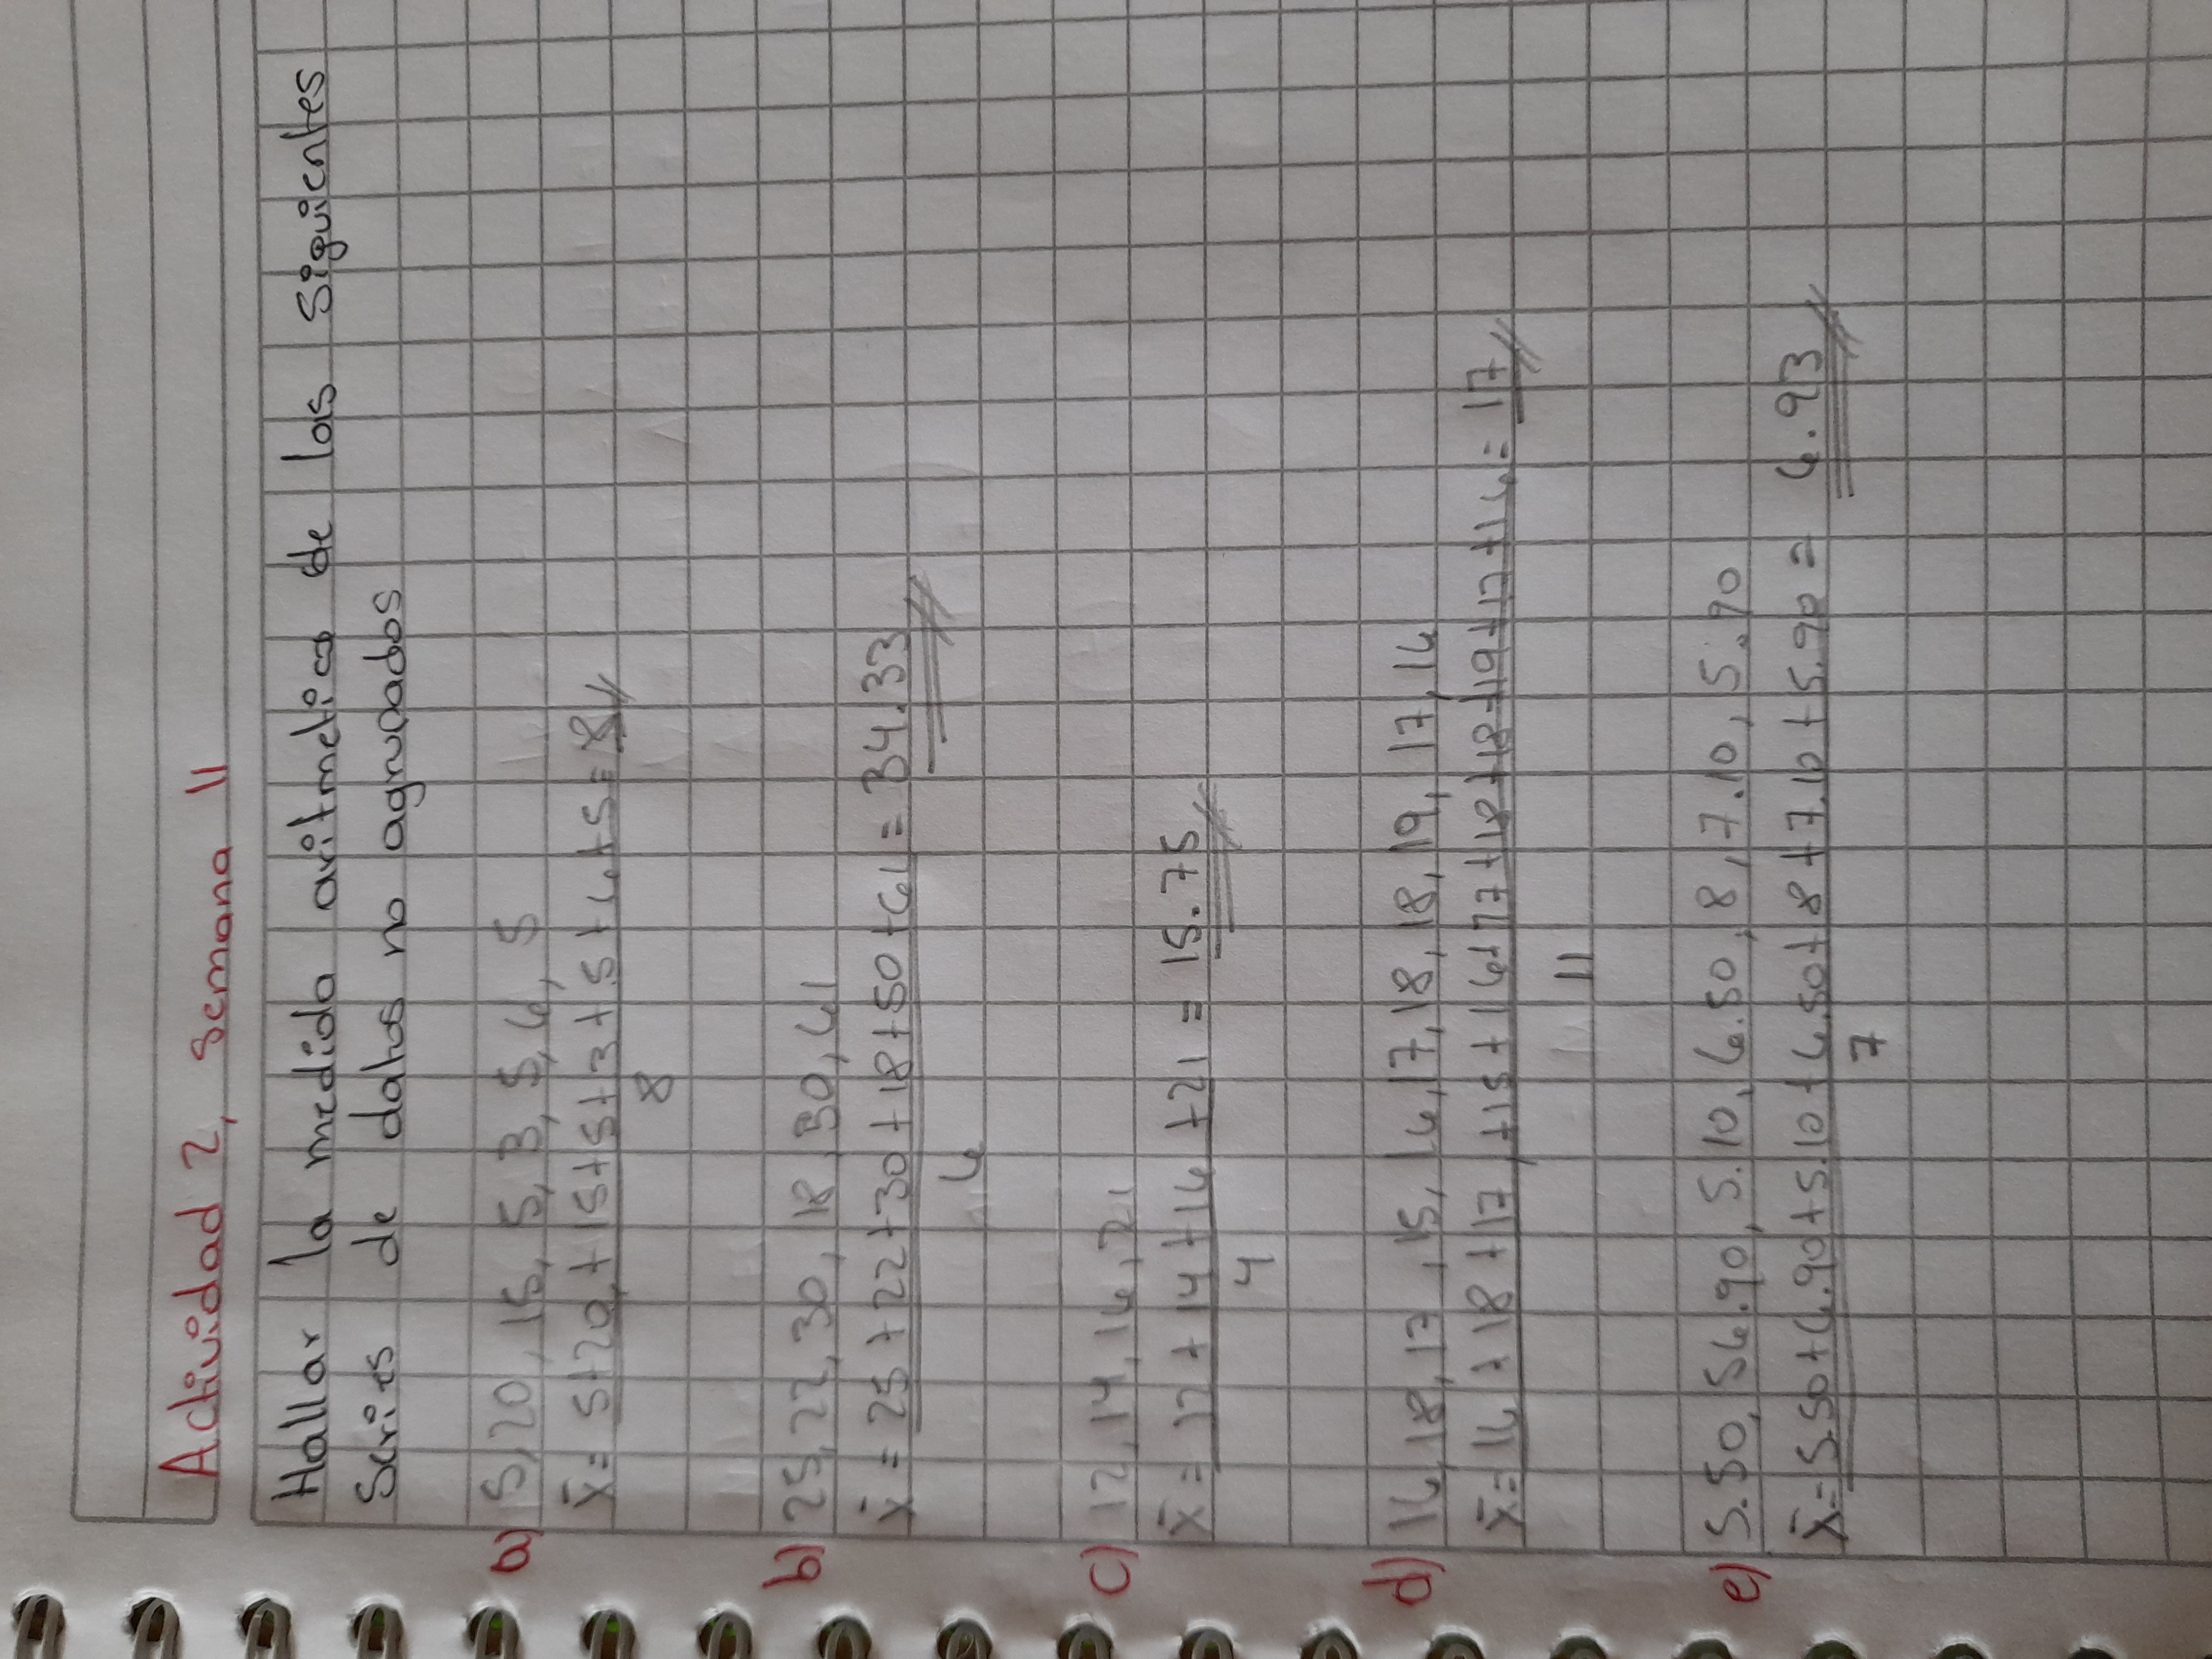 Actividad 2, semana 11
Hallar la medida aritmetica de los siguientes
series de datos no agrupados
a) 5, 20, 15, 5, 3, 5, 6, 5
x̄ = 5+20+15+5+3+5+6+5 = 8
8
b) 25, 22, 30, 18, 30, 61
x̄ = 25+22+30+18+50+61 = 34.33
6
c) 12, 14, 16, 21
x̄ = 12+14+16+21 = 15.75
4
d) 16, 18, 17, 15, 16, 17, 18, 18, 19, 17, 16
x̄ = 16+18+17+15+16+17+18+18+19+17+16 = 17
11
e) 5.50, 56.90, 5.10, 6.50, 8, 7.10, 5.90
x̄ = 5.50+6.90+5.10+6.50+8+7.10+5.90 = 6.93
7